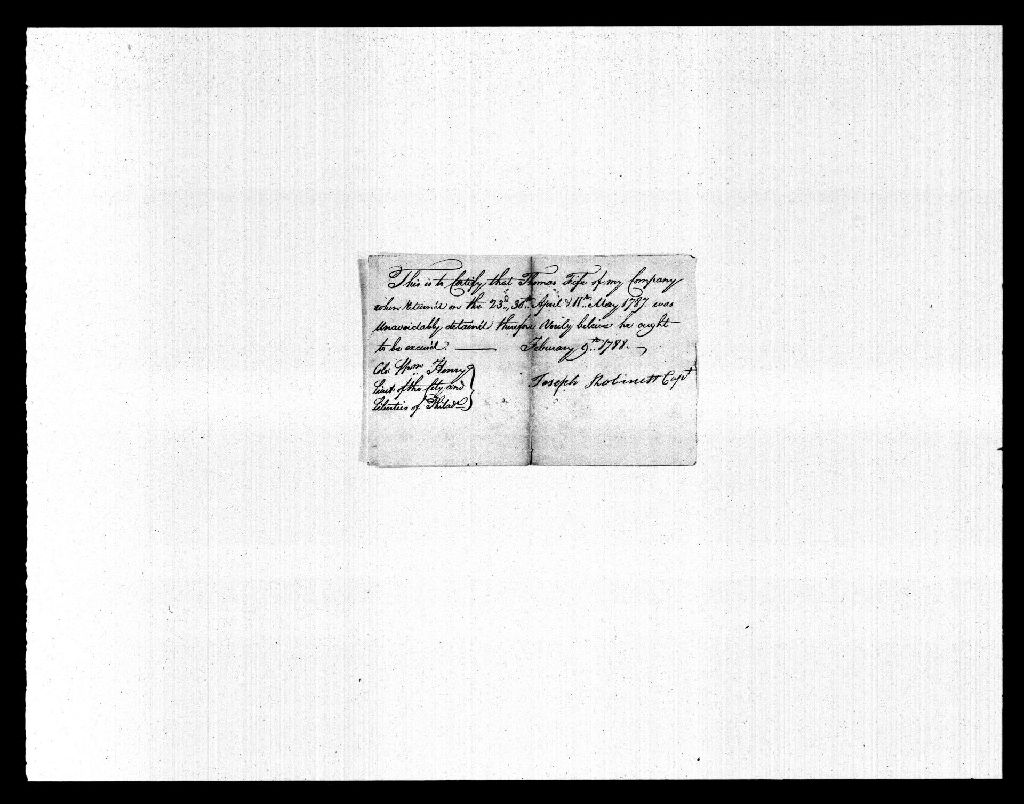 This is to Certify that Thomas Fife of my Company
when Return'd on the 23d, 30th April & 11th May 1787 was
Unavoidably detained therefore Verily beleive he ought
to be excus'd. February 9th 1788.
Colo Wm Henry
Lieut of the City and
Liberties of Philada
Joseph Robinett Capt